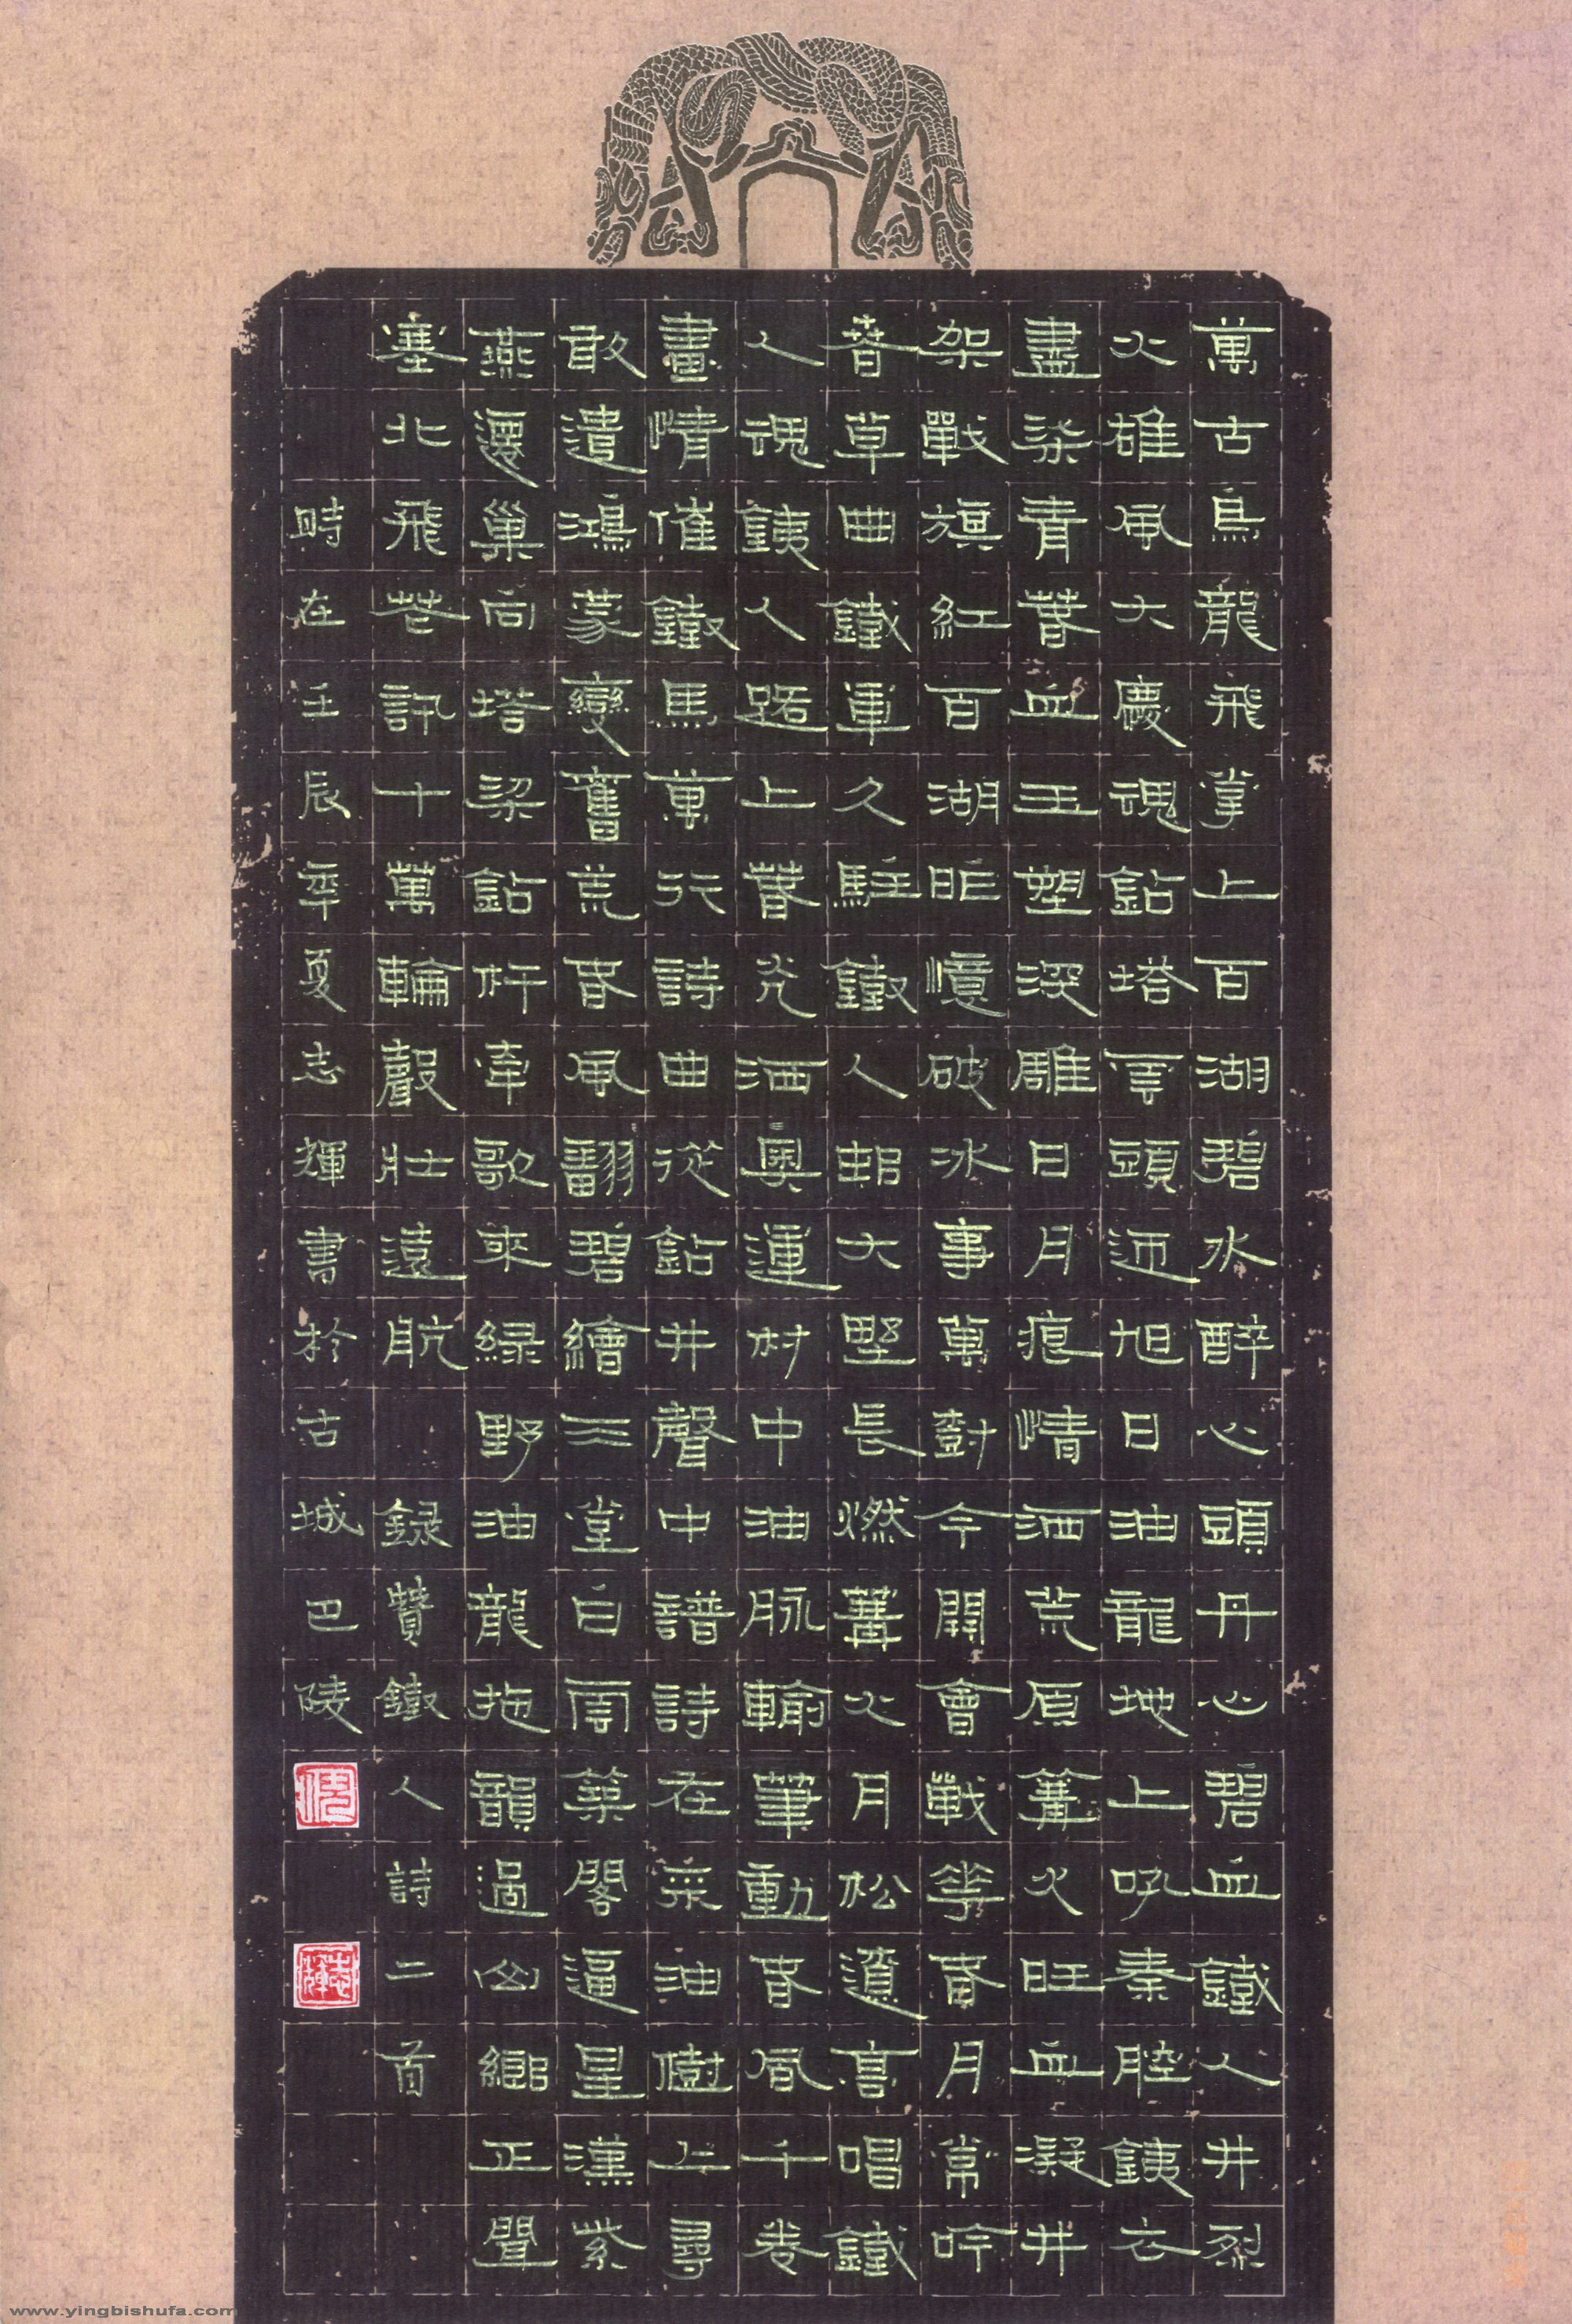 萬古烏龍飛掌上百湖碧水醉心頭丹心碧血鐵人井烈
火雄風大慶魂鉆塔雲頭迎旭日油龍地上吼秦腔銕衣
盡染青春血玉塑深雕日月痕情洒荒原篝火旺血凝井
架戰旗紅百湖昨憶破冰事萬對今開會戰華春月常吟
春草曲鐵軍久駐鐵人邨大野長燃篝火月松遺高唱鐵
人魂銕人路上春光洒奧運村中油脉輸筆動春風千卷
畫情催鐵馬萬行詩曲從鉆井聲中譜詩在采油樹上尋
敢遣鴻蒙變舊荒春風翻碧繪三堂白雨築閣逼星漢紫
燕還巢向塔梁鉆杆牽歌來綠野油龍拖韻過山鄉正聞
塞北飛花訊十萬輪聲壯遠航 録贊鐵人詩二首
時在壬辰年夏志輝書於古城巴陵
www.yingbishufa.com